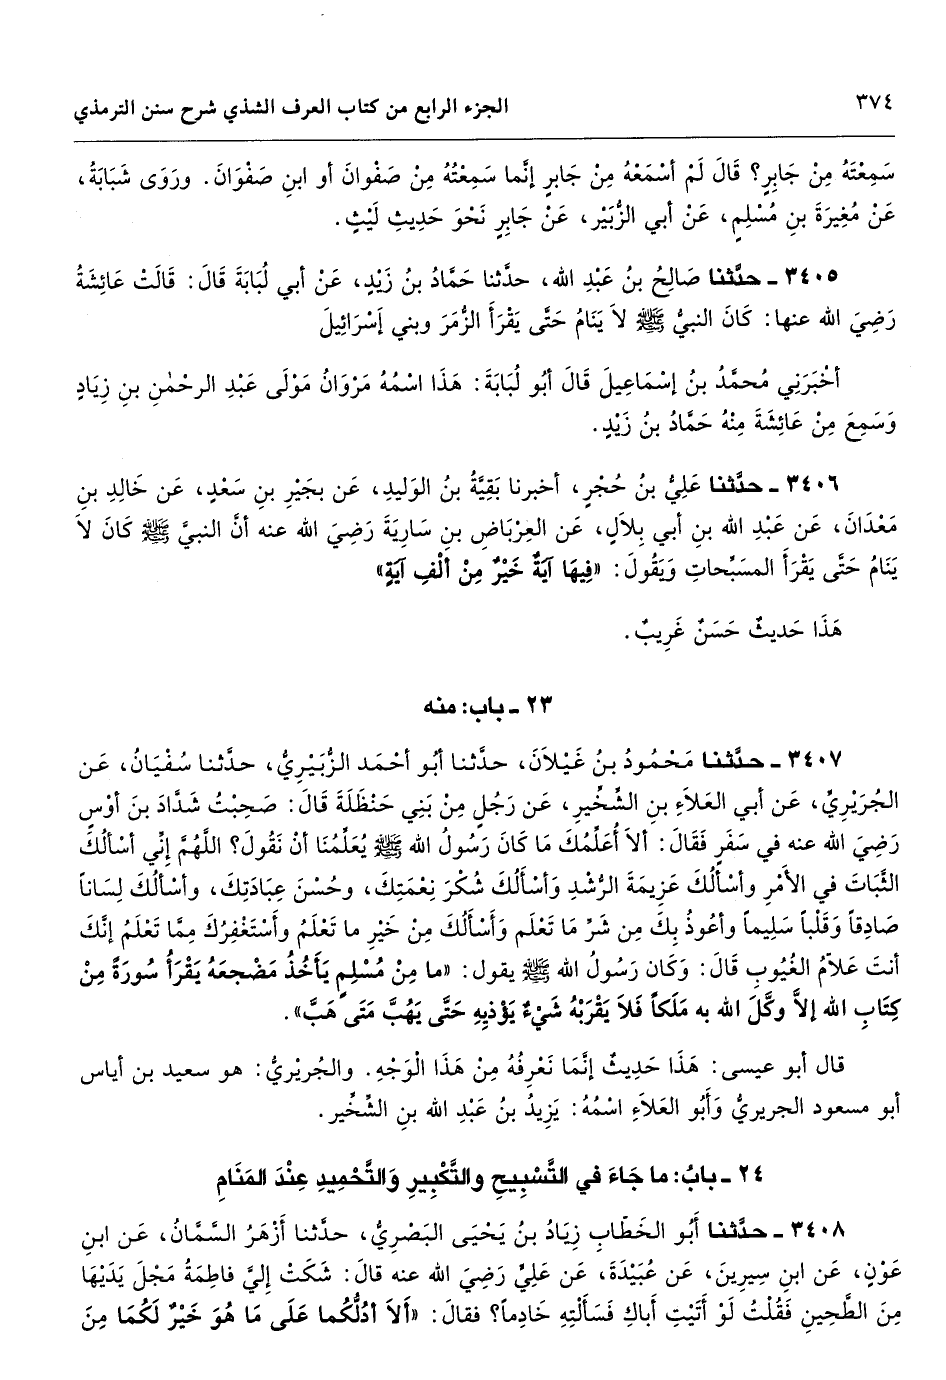 ٣٧٤ الجزء الرابع من كتاب العرف الشذي شرح سنن الترمذي
سَمِعْتَهُ مِنْ جَابِرٍ؟ قَالَ لَمْ أسْمَعْهُ مِنْ جَابرٍ إنَّما سَمِعْتُهُ مِنْ صَفْوانَ أو ابنِ صَفْوَانَ. ورَوَى شَبَابَةُ،
عَنْ مُغِيرَةَ بنِ مُسْلِمٍ، عَنْ أبي الزُّبَيْر، عَنْ جَابرٍ نَحْوَ حَديثِ لَيْثٍ.
٣٤٠٥ ـ حدَّثنا صَالِحُ بنُ عَبْدِ الله، حدَّثنا حَمَّادُ بنُ زَيْدٍ، عَنْ أبي لُبَابَةَ قَالَ: قَالَتْ عَائِشَةُ
رَضِيَ الله عنها: كَانَ النبيُّ ﷺ لاَ يَنَامُ حَتَّى يَقْرَأَ الزُّمَرَ وبني إسْرَائِيلَ
أخْبَرَنِي مُحمَّدُ بنُ إسْمَاعيلَ قَالَ أبُو لُبَابَةَ: هَذَا اسْمُهُ مَرْوَانُ مَوْلَى عَبْدِ الرحْمٰنِ بنِ زِيَادٍ
وَسَمِعَ مِنْ عَائِشَةَ مِنْهُ حَمَّادُ بنُ زَيْدٍ.
٣٤٠٦ ـ حدَّثنا عَلِيُّ بنُ حُجْرٍ، أخبرنا بَقِيَّةُ بنُ الوَليدِ، عَن بجَيْرِ بنِ سَعْدٍ، عَن خَالِدِ بنِ
مَعْدَانَ، عَن عَبْدِ الله بنِ أبي بِلاَلٍ، عَن العِرْبَاضِ بنِ سَارِيَةَ رَضِيَ الله عنه أنَّ النبيَّ ﷺ كَانَ لاَ
يَنَامُ حَتَّى يَقْرَأَ المسَبِّحاتِ وَيَقُولَ: «فِيهَا آيَةٌ خَيْرٌ مِنْ ألْفِ آيَةٍ»
هَذَا حَديثٌ حَسَنٌ غَرِيبٌ.
٢٣ ـ باب: منه
٣٤٠٧ ـ حدَّثنا مَحْمُودُ بنُ غَيْلاَنَ، حدَّثنا أبُو أحْمَد الزُّبَيْرِيُّ، حدَّثنا سُفْيَانُ، عَن
الجُرَيْرِيِّ، عَن أبي العَلاَءِ بنِ الشِّخِّيرِ، عَن رَجُلٍ مِنْ بَنِي حَنْظَلَةَ قَالَ: صَحِبْتُ شَدَّادَ بنَ أوْسٍ
رَضِيَ الله عنه في سَفَرٍ فَقَالَ: ألاَ أُعَلِّمُكَ مَا كَانَ رَسُولُ الله ﷺ يُعَلِّمُنَا أنْ نَقُولَ؟ اللَّهُمَّ إنِّي أسْألُكَ
الثَّبَاتَ في الأمْرِ وأسْألُكَ عَزِيمَةَ الرُّشْدِ وَأسْأَلُكَ شُكْرَ نِعْمَتِكَ، وحُسْنَ عِبَادَتِكَ، وأسْألُكَ لِسَاناً
صَادِقاً وَقَلْباً سَلِيماً وأعُوذُ بِكَ مِن شَرِّ مَا تَعْلَم وَأسْأَلُكَ مِنْ خَيْرِ ما تَعْلَمُ وأسْتَغْفِرُكَ مِمَّا تَعْلَمُ إنَّكَ
أنتَ عَلاَّمُ الغُيُوبِ قَالَ: وَكَان رَسُولُ الله ﷺ يقول: «ما مِنْ مُسْلِمٍ يَأخُذُ مَضْجعَهُ يَقْرَأُ سُورَةً مِنْ
كِتَابِ الله إلاَّ وكَّلَ الله به مَلَكاً فَلاَ يَقْرَبْهُ شَيْءٌ يَؤْذيِهِ حَتَّى يَهُبَّ مَتَى هَبَّ».
قال أبو عيسى: هَذَا حَدِيثٌ إنَّمَا نَعْرِفُهُ مِنْ هَذَا الْوَجْهِ. والجُرَيْريُّ: هو سعيد بن أياس
أبو مسعود الجريريُّ وَأَبُو العَلاَءِ اسْمُهُ: يَزِيدُ بنُ عَبْدِ الله بنِ الشِّخِّير.
٢٤ ـ بابُ: ما جَاءَ في التَّسْبِيحِ والتَّكْبِيرِ وَالتَّحْمِيدِ عِنْدَ المَنَامِ
٣٤٠٨ ـ حدَّثنا أَبُو الخَطَّابِ زِيَادُ بنُ يَحْيَى البَصْرِيُّ، حدَّثنا أزْهَرُ السَّمَّانُ، عَن ابنِ
عَوْنٍ، عَن ابنِ سِيرِينَ، عَن عُبَيْدَةَ، عَن عَلِيٍّ رَضِيَ الله عنه قالَ: شَكَتْ إليَّ فاطِمَةُ مَجْلَ يَدَيْهَا
مِنَ الطَّحِينِ فَقُلْتُ لَوْ أَتَيْتِ أبَاكِ فَسَألْتِهِ خَادِماً؟ فقالَ: «ألاَ أدُلُّكُما عَلَى مَا هُوَ خَيْرٌ لَكُمَا مِنَ